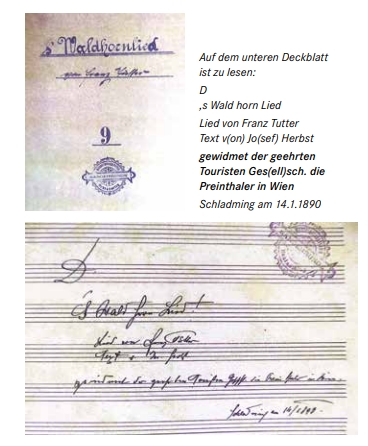 s' Waldhornlied
von Franz Tutter
9
Auf dem unteren Deckblatt
ist zu lesen:
D
‚s Wald horn Lied
Lied von Franz Tutter
Text v(on) Jo(sef) Herbst
gewidmet der geehrten
Touristen Ges(ell)sch. die
Preinthaler in Wien
Schladming am 14.1.1890
D
's Wald horn Lied!
Lied von Franz Tutter
Text v. Jo. Herbst
gewidmet der geehrten Touristen Gesssch. die Preinthaler in Wien
Schladming am 14/1 1890